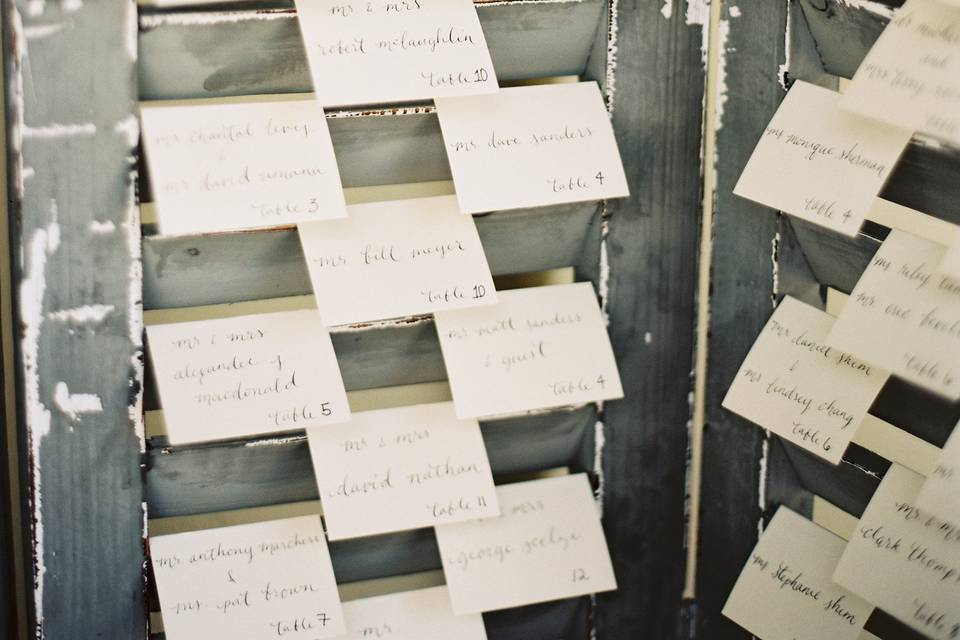 mr. & mrs
robert mclaughlin
table 10
mr chantal levey
&
mr david umana
table 3
mr dave sanders
table 4
mr. bill meyer
table 10
mr. & mrs
alexander j
macdonald
table 5
mr matt sanders
& guest
table 4
mr. & mrs
david nathan
table 11
mr anthony marchese
&
ms. pat brown
table 7
& mrs
george
12
mr
and
mrs
ms monique sherman
table 4
ms riley
mr eric
table
mr daniel shem
&
ms lindsey chang
table 6
mr. & mrs
clark
table
ms stephanie shem